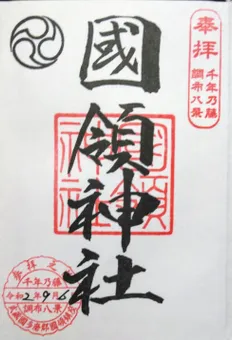 奉拝
千年乃藤
調布八景
國領神社
國領神社
参拝之証
千年乃藤
令和2年9月6
調布八景